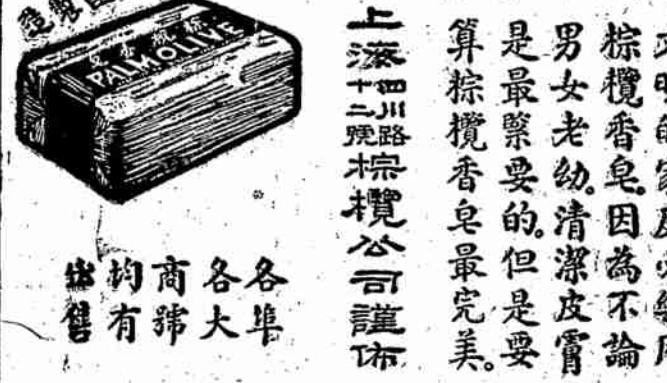 棕欖香皂。因為不論
男女老幼。清潔皮膚
是最緊要的。但是要
算棕欖香皂最完美。
上海四川路十二號棕欖公司謹佈
PALMOLIVE
各埠
各大
商號
均有
售